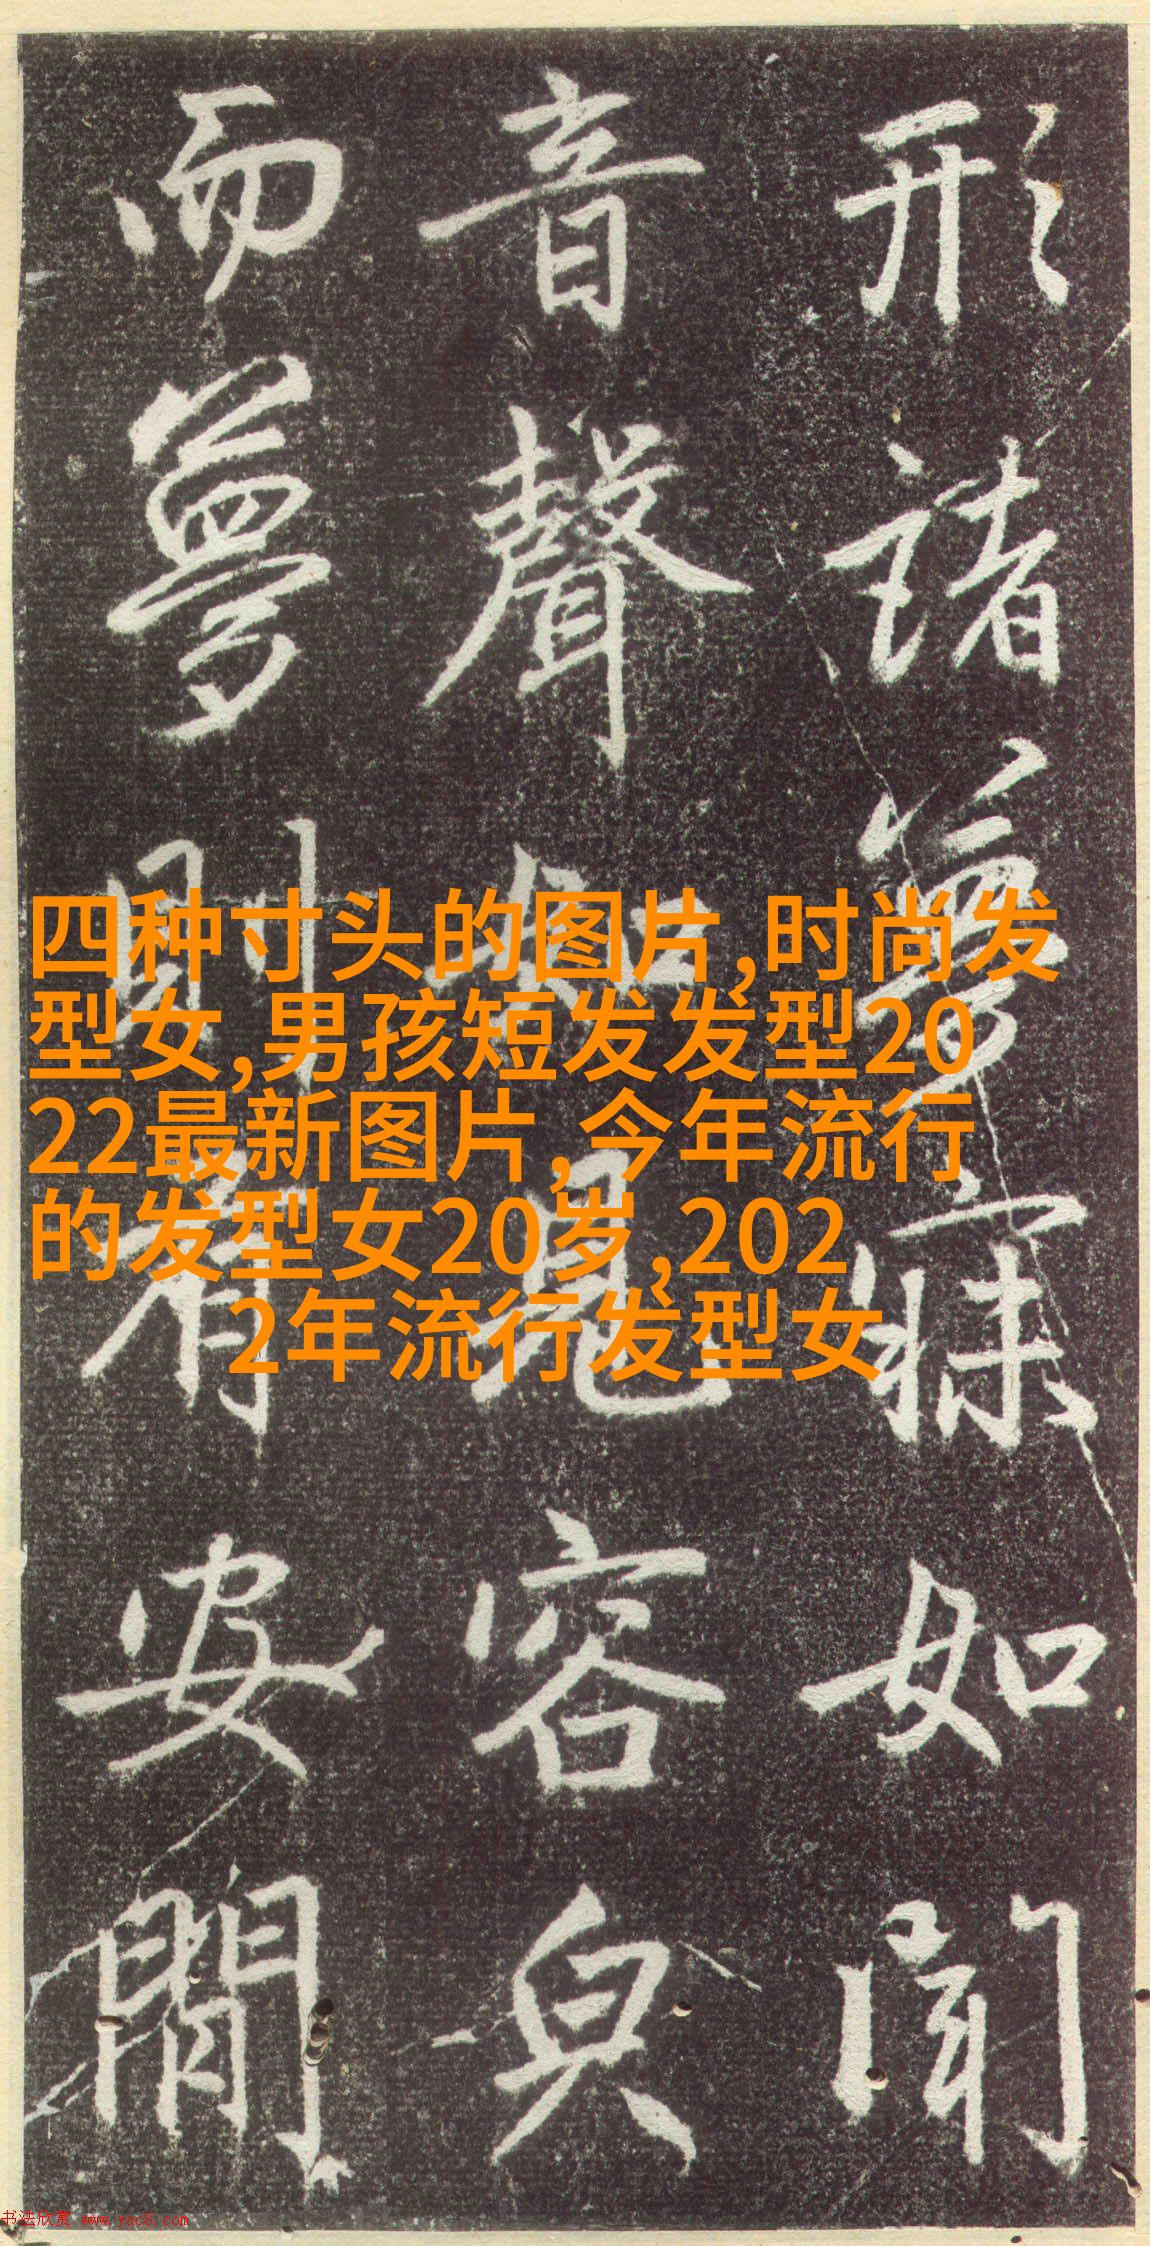 形諸夢寐如聞
音聲如見容皃
而夢則有安閒
四种寸头的图片,时尚发
型女,男孩短发发型20
22最新图片,今年流行
的发型女20岁,202
2年流行发型女
书法欣赏 www.yac8.com